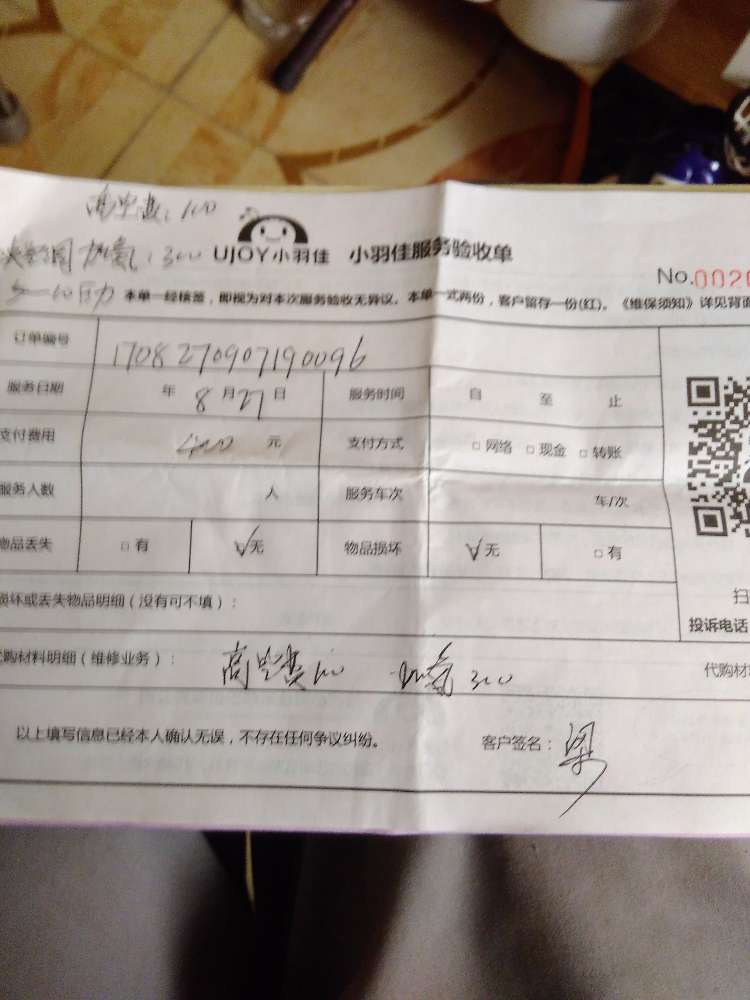 高空费:100
加氟:300 UJOY小羽佳 小羽佳服务验收单
No.0020
本单一经核签，即视为对本次服务验收无异议。本单一式两份，客户留存一份(红)。《维保须知》详见背面
订单编号 1708270907190096
服务日期 年 8 月 27 日 服务时间 自 至 止
支付费用 400 元 支付方式 □网络 □现金 □转账
服务人数 人 服务车次 车/次
物品丢失 □有 √无 物品损坏 √无 □有
损坏或丢失物品明细（没有可不填）：
扫
投诉电话
代购材料明细（维修业务）： 高空费100 加氟300 代购材
以上填写信息已经本人确认无误，不存在任何争议纠纷。 客户签名：梁